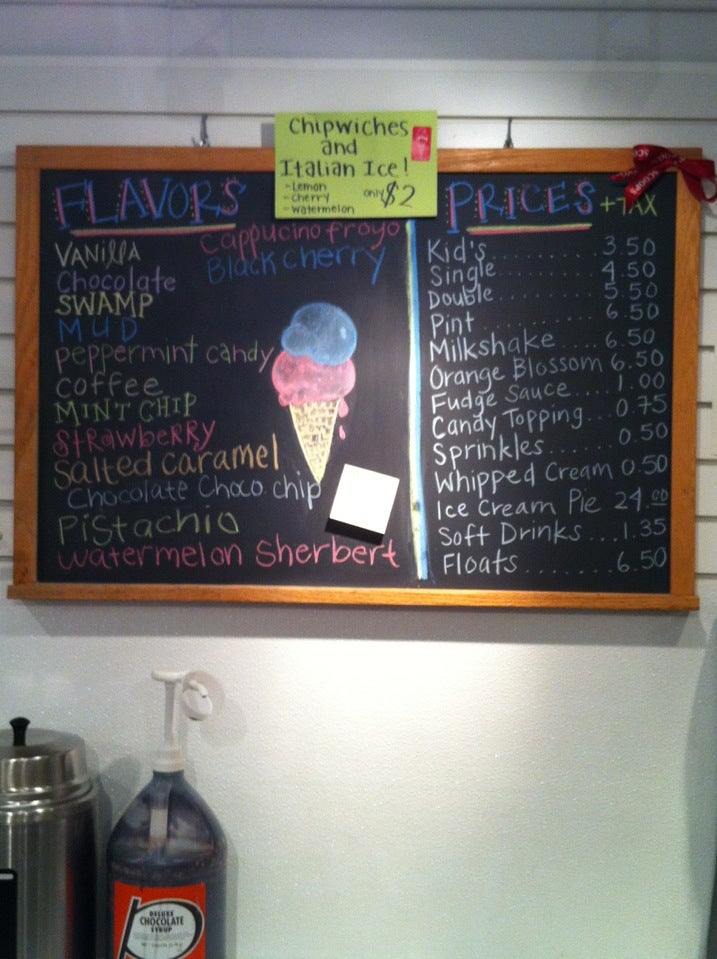 Chipwiches
and
Italian Ice!
- Lemon
- cherry
- watermelon
only $2
FLAVORS
Cappucino froyo
Black cherry
VANILLA
Chocolate
SWAMP
MUD
peppermint candy
coffee
MINT CHIP
STRAWBERRY
Salted caramel
Chocolate Choco. chip
Pistachio
Watermelon Sherbert
PRICES +TAX
Kid's.......... 3.50
Single.......... 4.50
Double.......... 5.50
Pint.......... 6.50
Milkshake..... 6.50
Orange Blossom 6.50
Fudge Sauce.... 1.00
Candy Topping...0.75
Sprinkles...... 0.50
Whipped Cream 0.50
Ice Cream Pie 24.00
Soft Drinks ...1.35
Floats ........6.50
DELUXE
CHOCOLATE
SYRUP